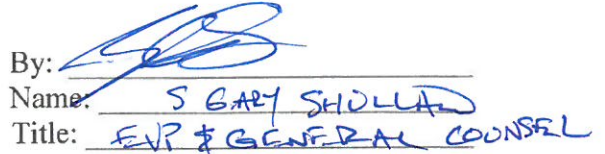 By:
Name: S GARY SHULLAD
Title: EVP & GENERAL COUNSEL